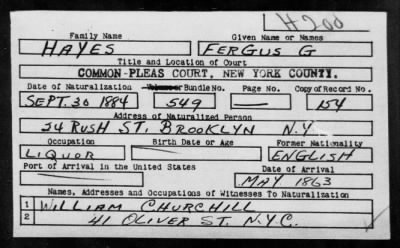 H200
Family Name Given Name or Names
HAYES FERGUS G
Title and Location of Court
COMMON PLEAS COURT, NEW YORK COUNTY.
Date of Naturalization Volume or Bundle No. Page No. Copy of Record No.
SEPT. 30 1884 549 — 154
Address of Naturalized Person
54 RUSH ST. BROOKLYN N.Y.
Occupation Birth Date or Age Former Nationality
LIQUOR ENGLISH
Port of Arrival in the United States Date of Arrival
MAY 1863
Names, Addresses and Occupations of Witnesses To Naturalization
1 WILLIAM CHURCHILL
2 41 OLIVER ST. N.Y.C.